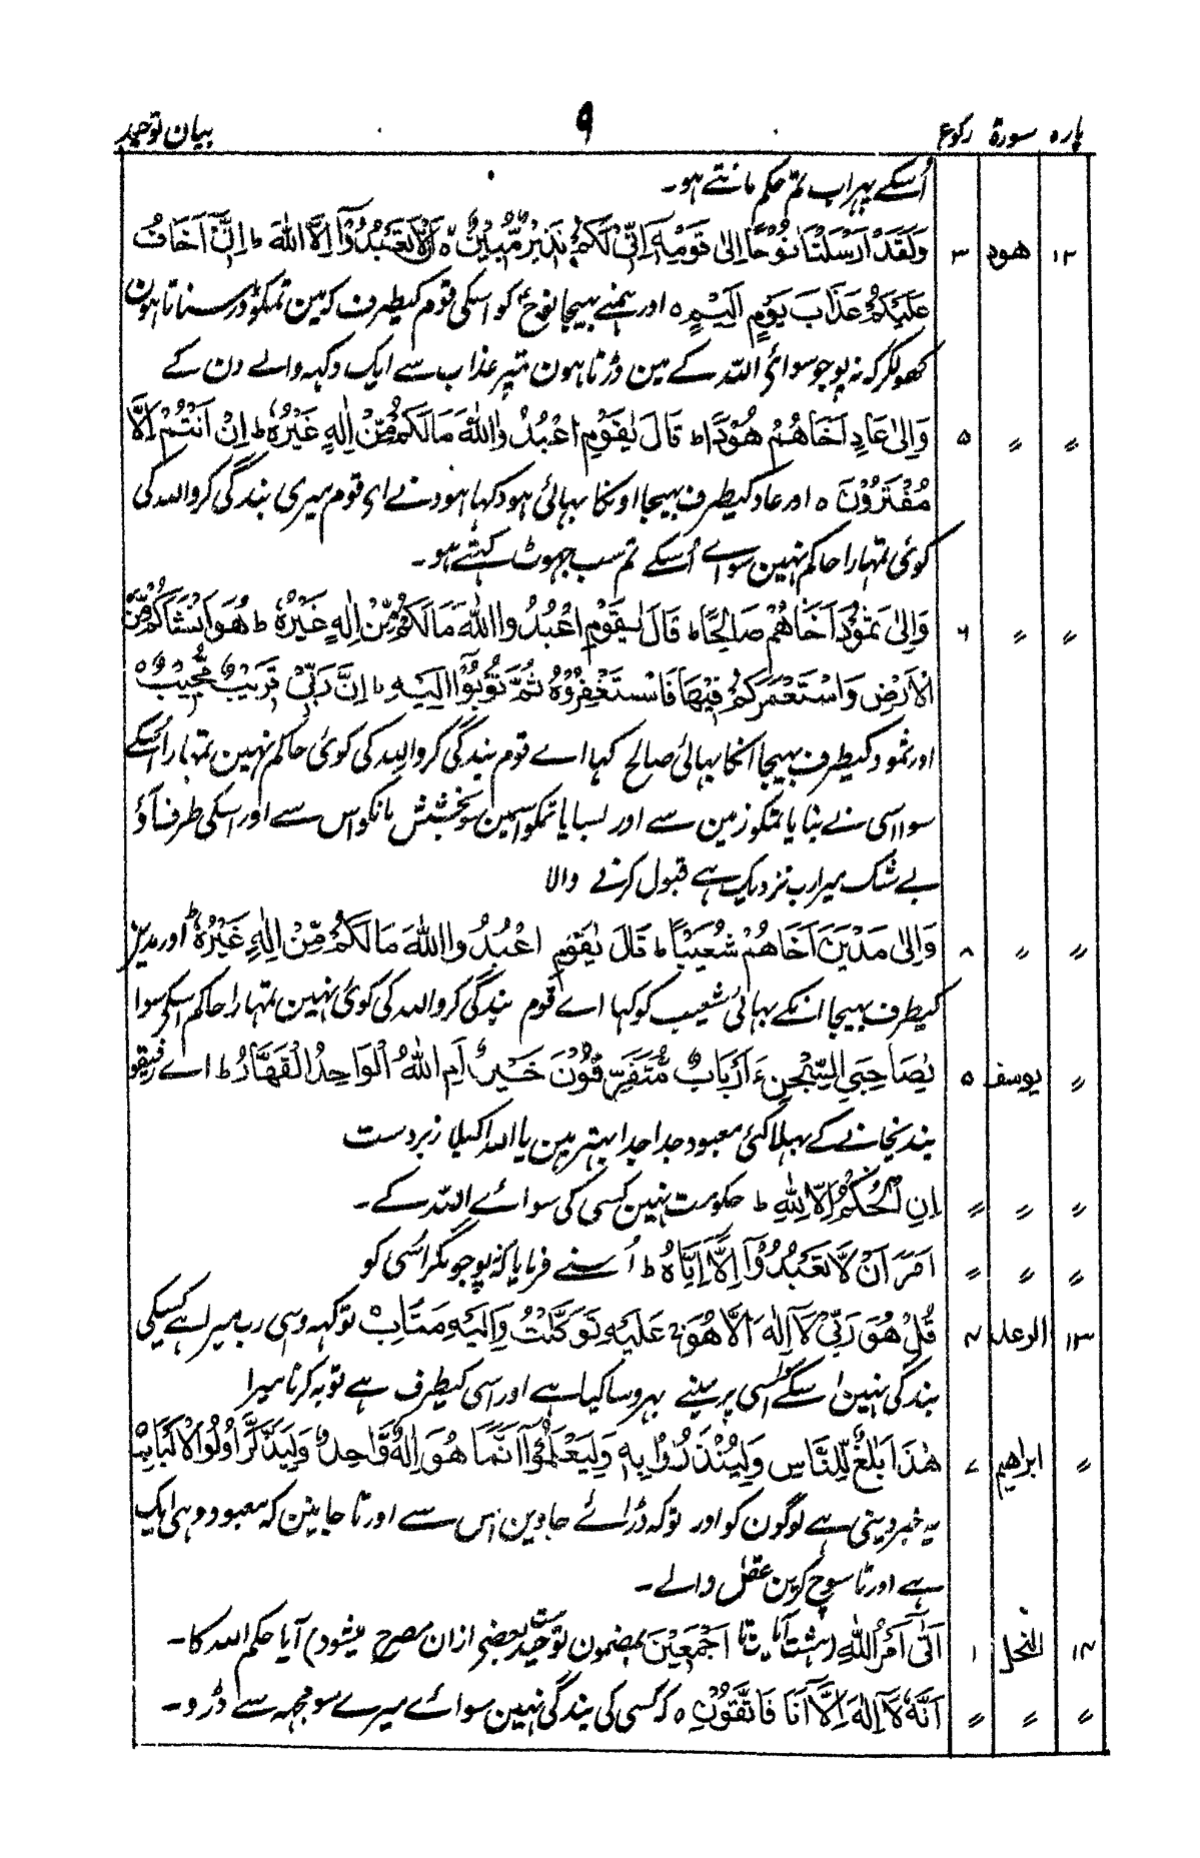 پارہ سورۃ رکوع ۹ بیان توحید
اُسکے پہر اب تم حکم مانتے ہو۔
۱۲ ھود ۳ وَلَقَدْ اَرْسَلْنَا نُوْحًا اِلٰی قَوْمِهٖ اِنِّیْ لَكُمْ نَذِیْرٌ مُّبِیْنٌ ٥ اَنْ لَّا تَعْبُدُوْٓا اِلَّا اللّٰهَ ط اِنِّیْٓ اَخَافُ
عَلَیْكُمْ عَذَابَ یَوْمٍ اَلِیْمٍ ٥ اور ہمنے بھیجا نوح کو اسکی قوم کیطرف کہ مین تمکو ڈر سناتا ہون
کھولکر کہ نہ پوجو سوائ اللہ کے مین ڈرتا ہون تمپر عذاب سے ایک دکہہ والے دن کے
〃 〃 ۵ وَاِلٰی عَادٍ اَخَاهُمْ هُوْدًا ط قَالَ یٰقَوْمِ اعْبُدُوا اللّٰهَ مَا لَكُمْ مِّنْ اِلٰهٍ غَیْرُهٗ ط اِنْ اَنْتُمْ اِلَّا
مُفْتَرُوْنَ ٥ اور عاد کیطرف بہیجا اونکا بہائی ہود کہا ہود نے ای قوم میری بندگی کرو اللہ کی
کوئی تمہارا حاکم نہین سواے اُسکے تم سب جہوٹ کہتے ہو۔
〃 〃 ۶ وَاِلٰی ثَمُوْدَ اَخَاهُمْ صَالِحًا ط قَالَ یٰقَوْمِ اعْبُدُوا اللّٰهَ مَا لَكُمْ مِّنْ اِلٰهٍ غَیْرُهٗ ط هُوَ اَنْشَاَكُمْ مِّنَ
الْاَرْضِ وَاسْتَعْمَرَكُمْ فِیْهَا فَاسْتَغْفِرُوْهُ ثُمَّ تُوْبُوْٓا اِلَیْهِ ط اِنَّ رَبِّیْ قَرِیْبٌ مُّجِیْبٌ ٥
اور ثمود کیطرف بہیجا انکا بہائی صالح کہا اے قوم بندگی کرو اللہ کی کوئ حاکم نہین تمہارا اسکے
سوا اسی نے بنایا تمکو زمین سے اور بسایا تمکو اسمین سو بخشش مانگو اس سے اور اسکی طرف آؤ
بے شک میرا رب نزدیک ہے قبول کرنے والا
〃 〃 ۸ وَاِلٰی مَدْیَنَ اَخَاهُمْ شُعَیْبًا ط قَالَ یٰقَوْمِ اعْبُدُوا اللّٰهَ مَا لَكُمْ مِّنْ اِلٰهٍ غَیْرُهٗ ط اور مدین
کیطرف بہیجا انکے بہائی شعیب کو کہا اے قوم بندگی کرو اللہ کی کوئ نہین تمہارا حاکم اسکے سوا
〃 یوسف ۵ یٰصَاحِبَیِ السِّجْنِ ءَاَرْبَابٌ مُّتَفَرِّقُوْنَ خَیْرٌ اَمِ اللّٰهُ الْوَاحِدُ الْقَهَّارُ ط اے رفیقو
بندیخانے کے بہلا کئی معبود جدا جدا بہتر ہین یا اللہ اکیلا زبردست
〃 〃 〃 اِنِ الْحُكْمُ اِلَّا لِلّٰهِ ط حکومت نہین کسی کی سوائے اللہ کے۔
〃 〃 〃 اَمَرَ اَنْ لَّا تَعْبُدُوْٓا اِلَّآ اِیَّاهُ ط اُسنے فرمایا کہ نہ پوجو مگر اُسی کو
۱۳ الرعد ۴ قُلْ هُوَ رَبِّیْ لَآ اِلٰهَ اِلَّا هُوَ ج عَلَیْهِ تَوَكَّلْتُ وَاِلَیْهِ مَتَابِ تو کہہ وہی رب میرا ہے کسیکی
بندگی نہین اسکے اُسی پر مینے بہروسا کیا ہے اور اسی کیطرف ہے توبہ کرنا میرا
〃 ابراهیم ۷ هٰذَا بَلٰغٌ لِّلنَّاسِ وَلِیُنْذَرُوْا بِهٖ وَلِیَعْلَمُوْٓا اَنَّمَا هُوَ اِلٰهٌ وَّاحِدٌ وَّلِیَذَّكَّرَ اُولُوا الْاَلْبَابِ
یہ خبر دینی ہے لوگون کو اور تو کہ ڈرائے جاوین اس سے اور تا جانین کہ معبود وہی ایک
ہے اور تا سوچ کرین عقل والے۔
۱۴ النحل ۱ اَتٰٓی اَمْرُ اللّٰهِ (ہشت آیات تا اَجْمَعِیْنَ بمضمون توحید بعضے ازان مصرح میشود) آیا حکم اللہ کا۔
〃 〃 〃 اَنَّهٗ لَآ اِلٰهَ اِلَّآ اَنَا فَاتَّقُوْنِ ٥ کہ کسی کی بندگی نہین سوائے میرے سو مجہہ سے ڈرو۔